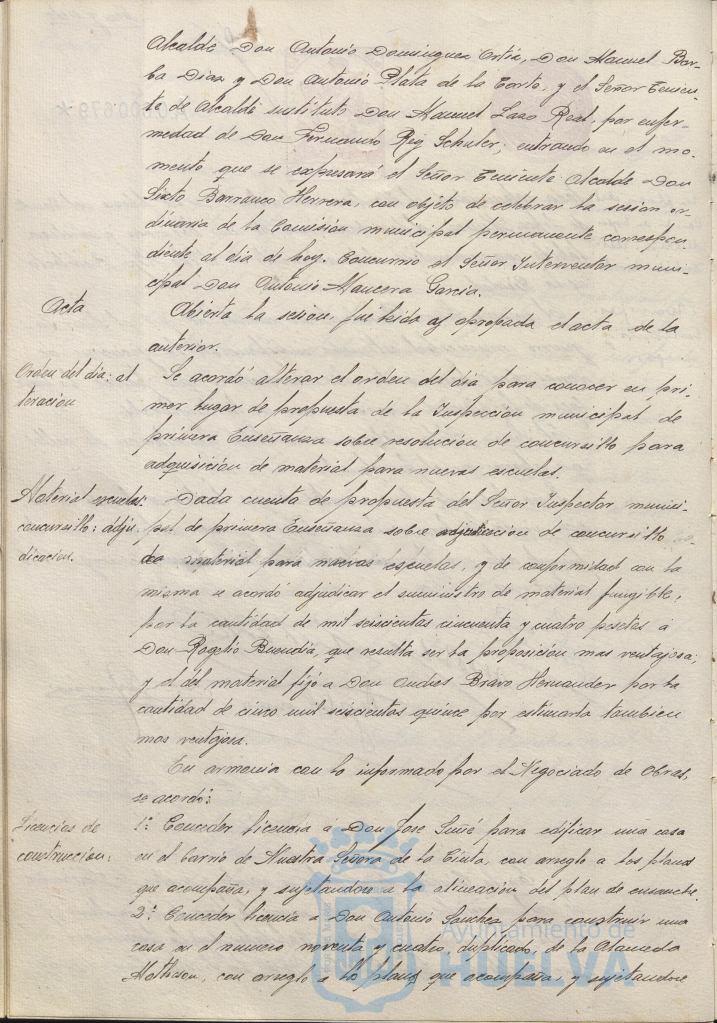 Alcalde Don Antonio Dominguez Ortiz, Don Manuel Bar-
ba Diaz y Don Antonio Plata de la Corte, y el Señor Tenien-
te de Alcalde sustituto Don Manuel Lazo Real, por enfer-
medad de Don Fernando Rey Schuler; entrando en el mo-
mento que se expresará el Señor Teniente Alcalde Don
Sixto Barranco Herrera, con objeto de celebrar la sesion or-
dinaria de la Comisión municipal permanente correspon-
diente al dia de hoy. Concurrio el Señor Interventor muni-
cipal Don Antonio Mancera Garcia.
Acta
Abierta la sesion, fue leida y aprobada el acta de la
anterior.
Orden del dia: al
teracion
Se acordó alterar el orden del dia para conocer en pri-
mer lugar de propuesta de la Inspección municipal de
primera Enseñanza sobre resolucion de concursillo para
adquisición de material para nuevas escuelas.
Material escuelas:
concursillo: adju-
dicacion.
Dada cuenta de propuesta del Señor Inspector munici-
pal de primera Enseñanza sobre adjudicacion de concursillo
de material para nuevas escuelas, y de conformidad con la
misma se acordó adjudicar el suministro de material fungible,
por la cantidad de mil seiscientas cincuenta y cuatro pesetas a
Don Rogelio Buendia, que resulta ser la proposicion mas ventajosa;
y el del material fijo a Don Andres Bravo Hernandez por la
cantidad de cinco mil seiscientas quince por estimarla tambien
mas ventajosa.
En armonia con lo informado por el Negociado de Obras,
se acordó:
Licencias de
construccion:
1º: Conceder licencia a Don Jose Suñé para edificar una casa
en el barrio de Nuestra Señora de la Cinta, con arreglo a los planos
que acompaña, y sujetandose a la alineacion del plan de ensanche.
2º: Conceder licencia a Don Antonio Sanchez para construir una
casa en el numero noventa y cuatro, duplicado, de la Alameda
con arreglo a los planos que acompaña, y sujetandose
Ayuntamiento de
HUELVA